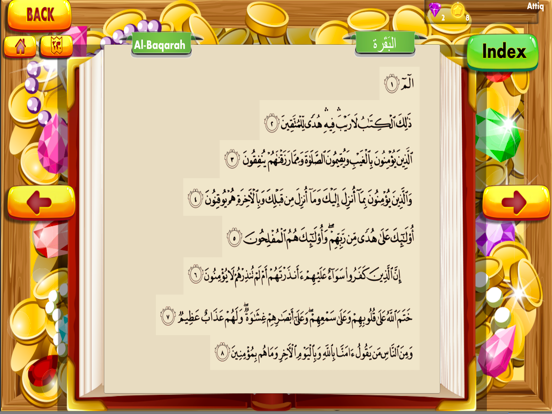 BACK
Attiq
2 0
Al-Baqarah
البَقَرة
Index
الٓمٓ ١
ذَٰلِكَ ٱلْكِتَـٰبُ لَا رَيْبَ ۛ فِيهِ ۛ هُدًى لِّلْمُتَّقِينَ ٢
ٱلَّذِينَ يُؤْمِنُونَ بِٱلْغَيْبِ وَيُقِيمُونَ ٱلصَّلَوٰةَ وَمِمَّا رَزَقْنَـٰهُمْ يُنفِقُونَ ٣
وَٱلَّذِينَ يُؤْمِنُونَ بِمَآ أُنزِلَ إِلَيْكَ وَمَآ أُنزِلَ مِن قَبْلِكَ وَبِٱلْـَٔاخِرَةِ هُمْ يُوقِنُونَ ٤
أُو۟لَـٰٓئِكَ عَلَىٰ هُدًى مِّن رَّبِّهِمْ ۖ وَأُو۟لَـٰٓئِكَ هُمُ ٱلْمُفْلِحُونَ ٥
إِنَّ ٱلَّذِينَ كَفَرُوا۟ سَوَآءٌ عَلَيْهِمْ ءَأَنذَرْتَهُمْ أَمْ لَمْ تُنذِرْهُمْ لَا يُؤْمِنُونَ ٦
خَتَمَ ٱللَّهُ عَلَىٰ قُلُوبِهِمْ وَعَلَىٰ سَمْعِهِمْ ۖ وَعَلَىٰٓ أَبْصَـٰرِهِمْ غِشَـٰوَةٌ ۖ وَلَهُمْ عَذَابٌ عَظِيمٌ ٧
وَمِنَ ٱلنَّاسِ مَن يَقُولُ ءَامَنَّا بِٱللَّهِ وَبِٱلْيَوْمِ ٱلْـَٔاخِرِ وَمَا هُم بِمُؤْمِنِينَ ٨